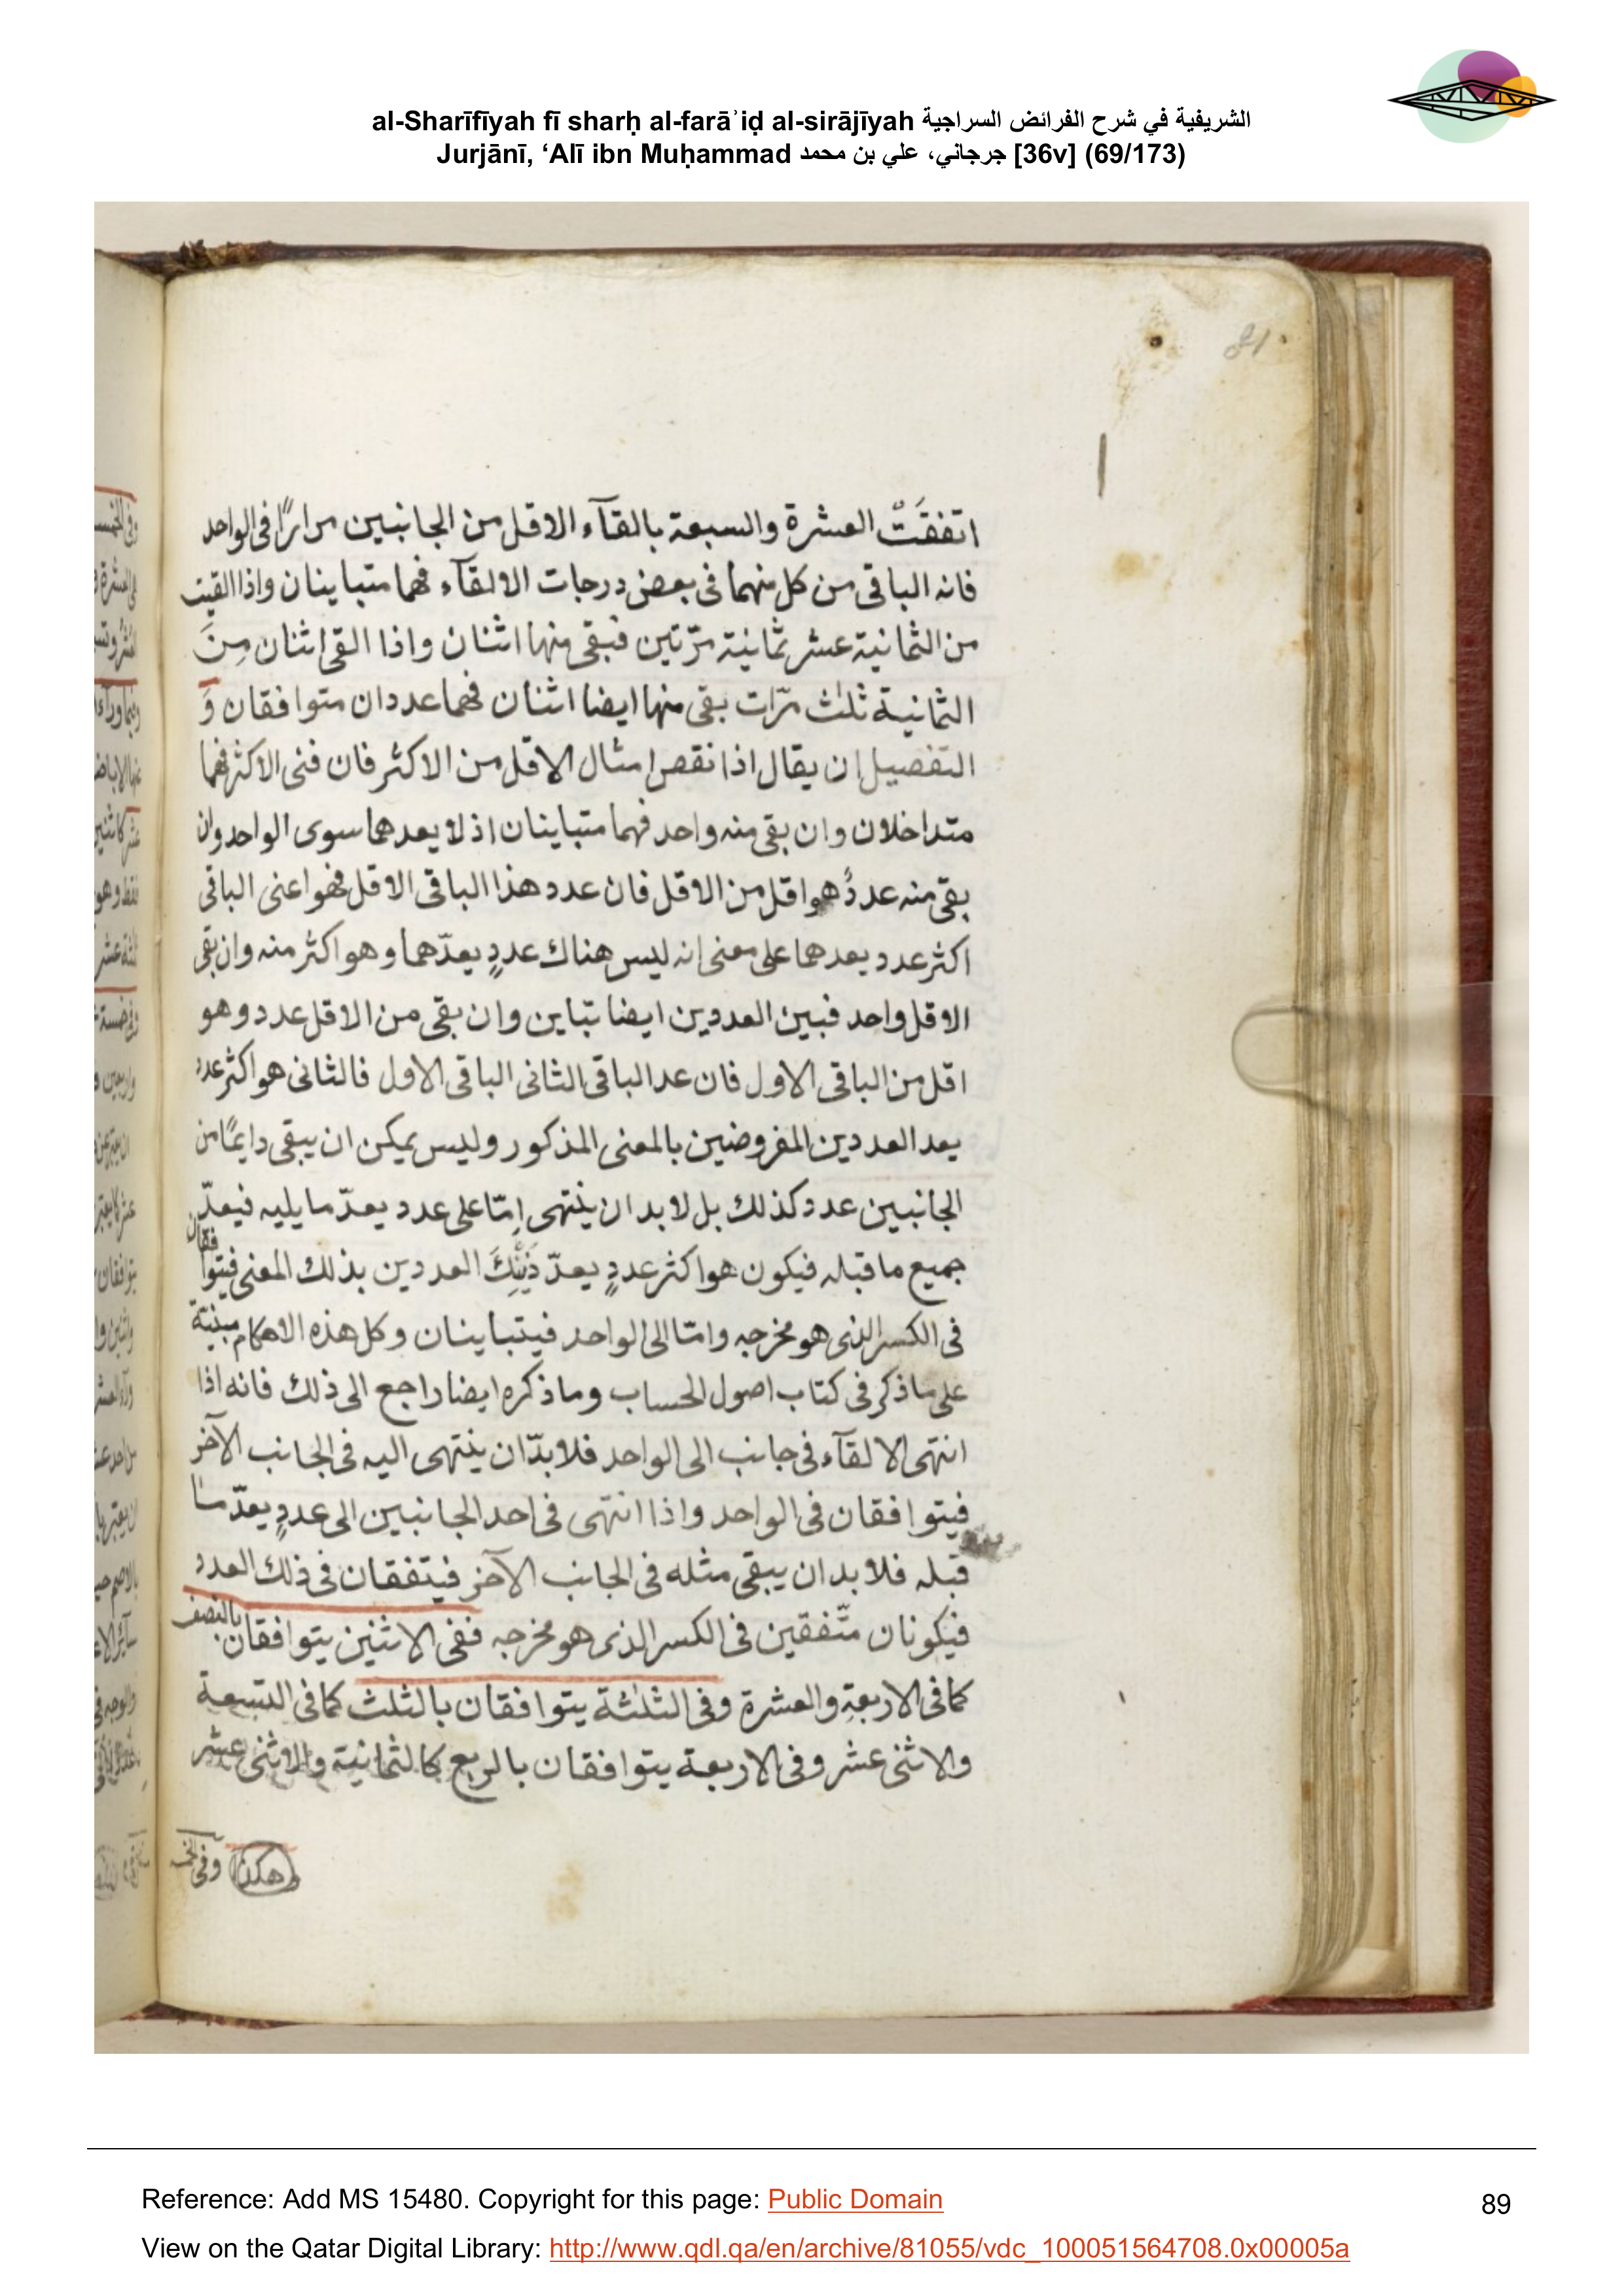 al-Sharīfīyah fī sharḥ al-farāʾiḍ al-sirājīyah الشريفية في شرح الفرائض السراجية
Jurjānī, ‘Alī ibn Muḥammad جرجاني، علي بن محمد [36v] (69/173)
اتفقَتْ العشرة والسبعة بالقآء الاقل من الجانبين مرارًا فى الواحد
فانه الباقى من كل منهما فى بعض درجات الالقآء فهما متباينان واذا القيت
من الثمانية عشر ثمانية مرّتين فبقى منها اثنان واذا القى اثنان مِنَ
الثمانية ثلث مرّات بقى منها ايضا اثنان فهما عددان متوافقان وَ
التفصيل ان يقال اذا نقص امثال الاقل من الاكثر فان فنى الاكثر فهما
متداخلان وان بقى منه واحد فهما متباينان اذ لا يعدهما سوى الواحد وان
بقى منه عددٌ هو اقل من الاقل فان عدد هذا الباقى الاقل فهو اعنى الباقى
اكثر عدد يعدهما على معنى انه ليس هناك عددٍ يعدّهما و هو اكثر منه وان بقى
الاقل واحد فبين العددين ايضا تباين وان بقى من الاقل عدد و هو
اقل من الباقى الاول فان عد الباقى الثانى الباقى الاول فالثانى هو اكثر عدد
يعد العددين المفروضين بالمعنى المذكور وليس يمكن ان يبقى دايمًا من
الجانبين عدد كذلك بل لا بد ان ينتهى اِمّا على عدد يعدّ ما يليه فيعدّ
جميع ما قبله فيكون هو اكثر عددٍ يعدّ ذَيْنِكَ العددين بذلك المعنى فيتوا فقان
فى الكسر الذى هو مخرجه وامّا الى الواحد فيتباينان وكل هذه الاحكام مبنية
على ما ذكر فى كتاب اصول الحساب وما ذكره ايضا راجع الى ذلك فانه اذا
انتهى الالقآء فى جانب الى الواحد فلا بدّ ان ينتهى اليه فى الجانب الآخر
فيتوافقان فى الواحد واذا انتهى فى احد الجانبين الى عددٍ يعدّ ما
قبله فلا بد ان يبقى مثله فى الجانب الآخر فيتفقان فى ذلك العدد
فيكونان متّفقين فى الكسر الذى هو مخرجه ففى الاثنين يتوافقان بالنصف
كما فى الاربعة والعشرة وفى الثلثة يتوافقان بالثلث كما فى التسعة
والاثنى عشر وفى الاربعة يتوافقان بالربع كالثمانية والاثنى عشر
هكذا وفى
Reference: Add MS 15480. Copyright for this page: Public Domain
89
View on the Qatar Digital Library: http://www.qdl.qa/en/archive/81055/vdc_100051564708.0x00005a